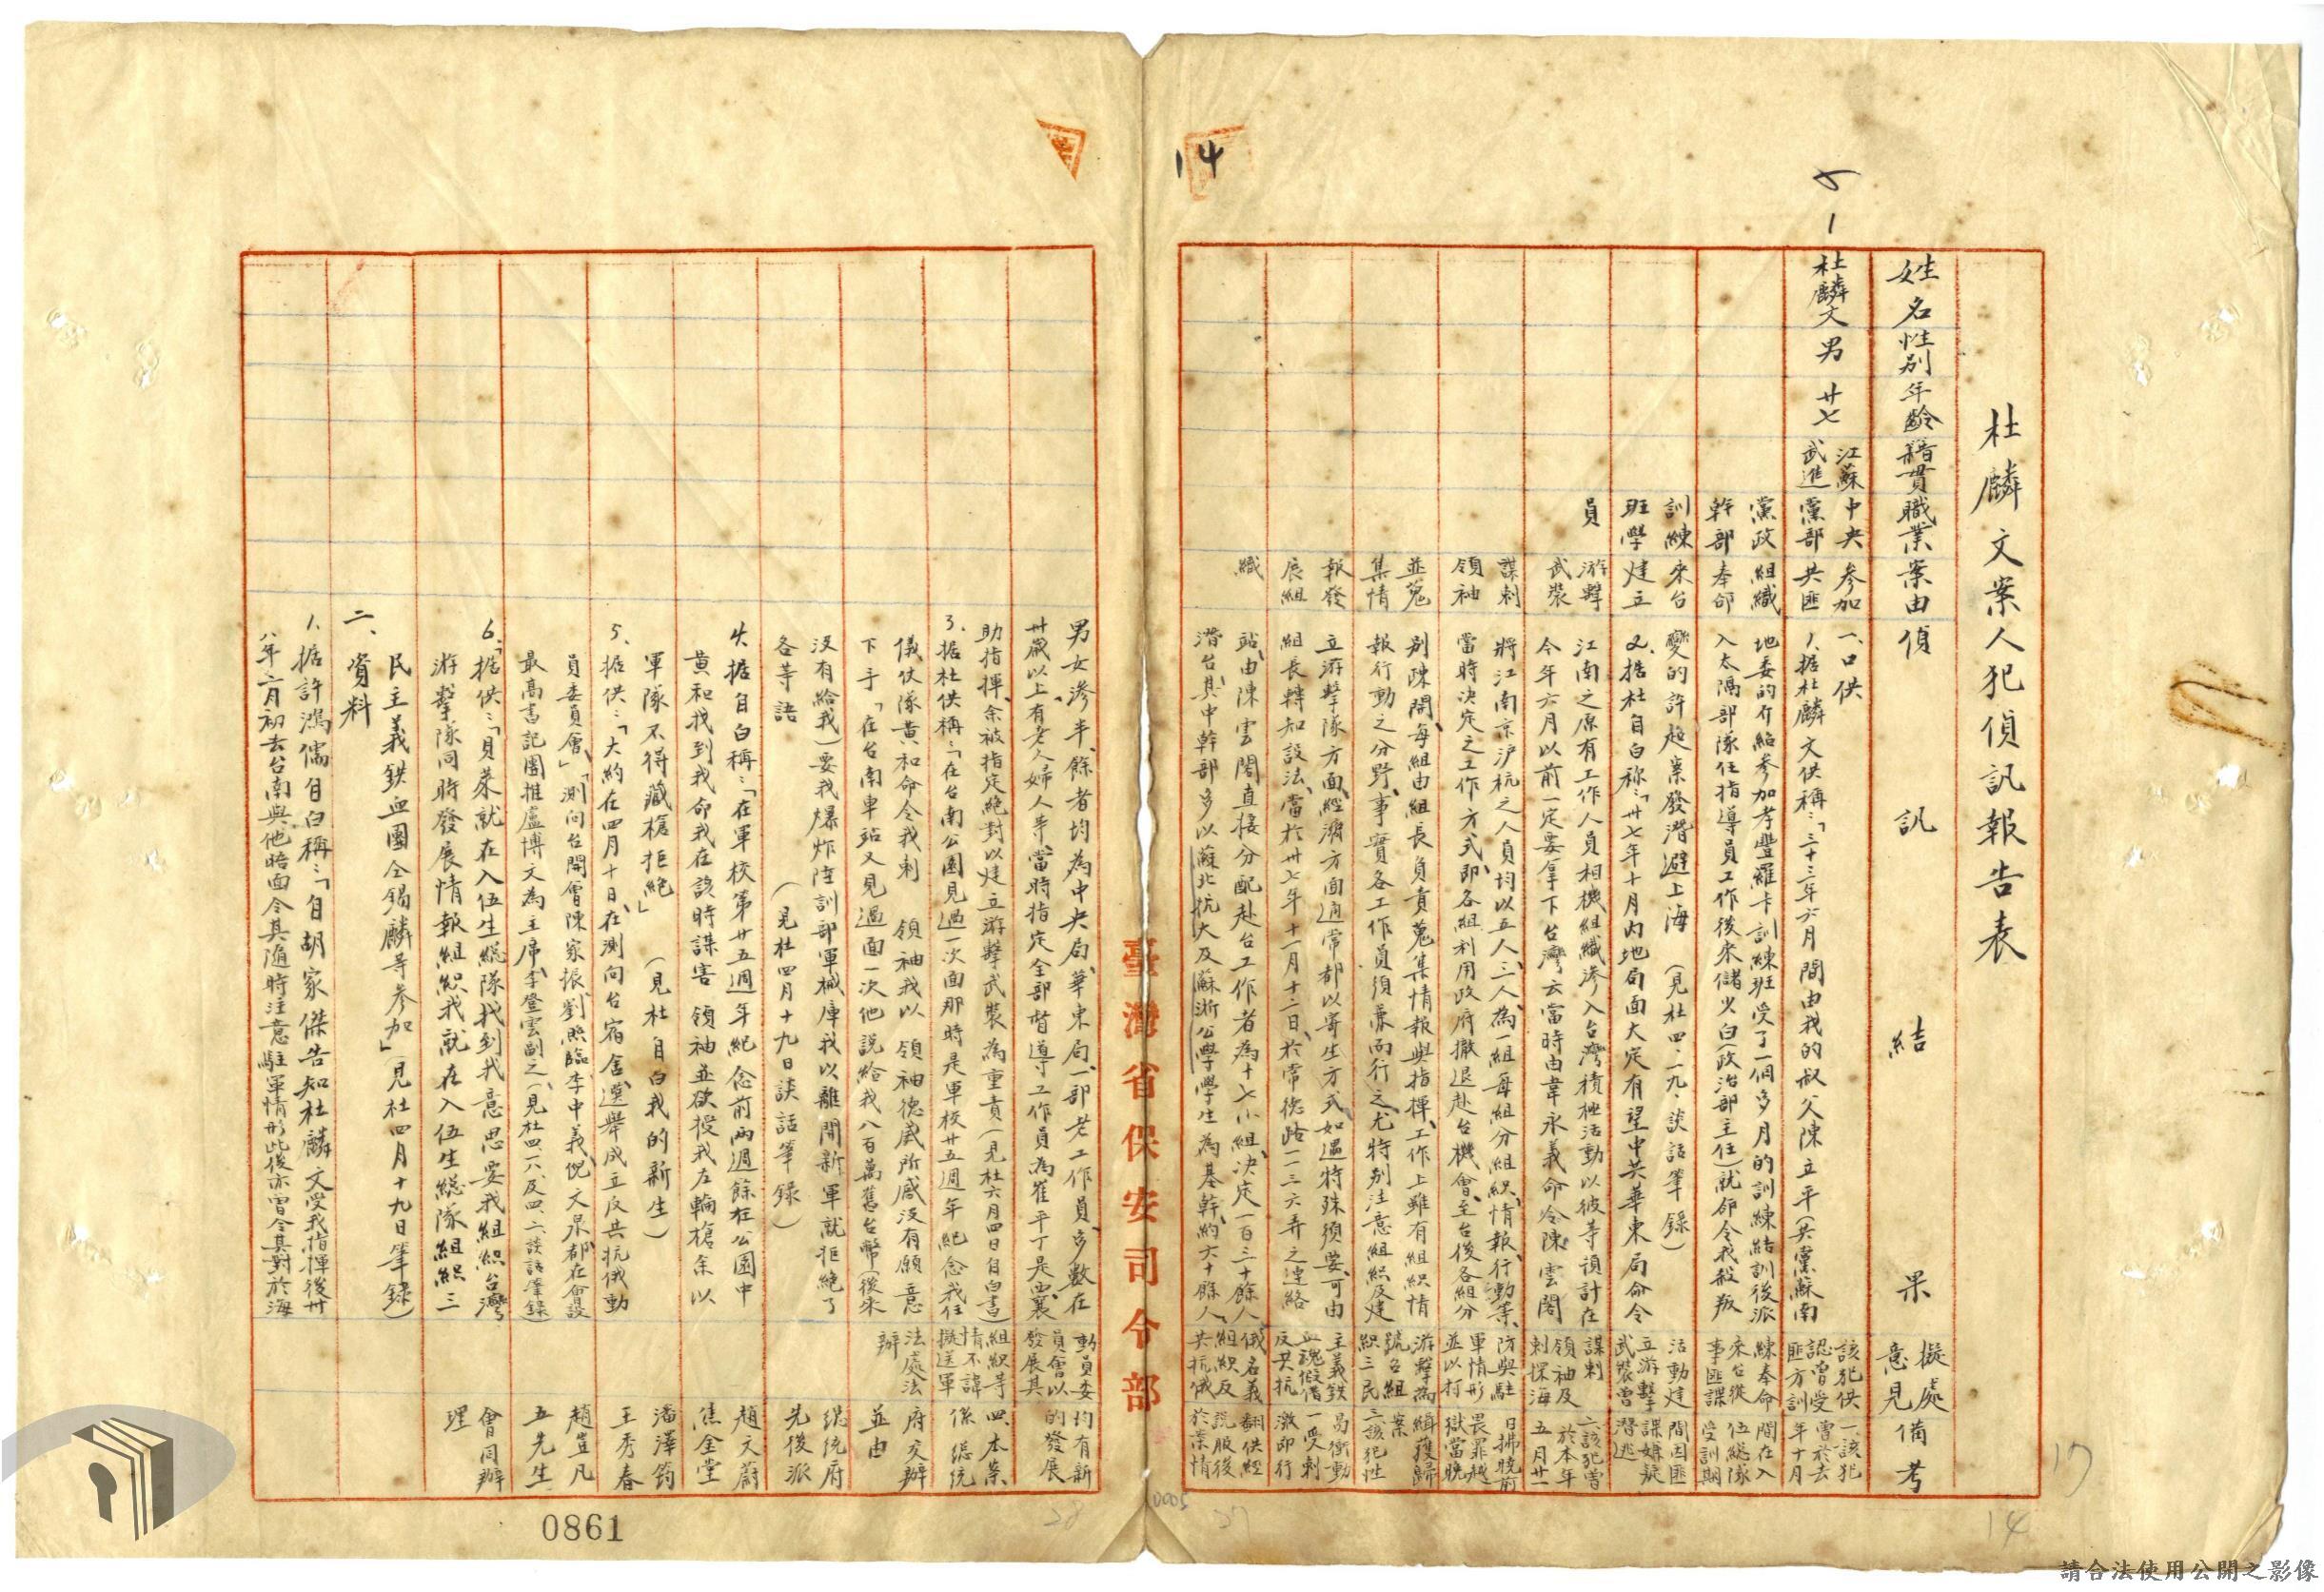 杜麟文案人犯偵訊報告表
姓名性別年齡籍貫職業案由偵訊結果擬處意見備考
杜麟文
男
廿七
江蘇
武進
中央
黨部
黨政
幹部
訓練
班學
員
參加
共匪
組織
奉命
來台
建立
游擊
武裝
謀刺
領袖
並蒐
集情
報發
展組
織
一、口供
1.据杜麟文供稱：「三十三年六月間由我的叔父陳立平（共黨蘇南
地委的介紹參加孝豐羅卡訓練班受了一個多月的訓練結訓後派
入太隔部隊任指導員工作後來儲火白（政治部主任）就命令我殺叛
變的許超案發潛避上海（見杜四、二九、談話筆錄）
2.据杜自白稱：「卅七年十月內地局面大定有望中共華東局命令
江南之原有工作人員相機組織滲入台灣積極活動以彼等預計在
今年六月以前一定要拿下台灣云當時由韋永義命令陳雲閣
將江南京沪杭之人員均以五人、三人、為一組每組分組織、情報、行動等、
當時決定之工作方式、即各組利用政府撤退赴台機會、至台後各組分
別陳開、每組由組長負責蒐集情報與指揮、工作上雖有組織情
報行動之分野、事實各工作員須兼而行之、尤特別注意組織及建
立游擊隊方面、經濟方面通常都以寄生方式如遇特殊須要、可由
組長轉知設法、當於卅七年十一月十二日、於常德路一二三六弄之連絡
站、由陳雲閣直接分配赴台工作者為十七小組、決定一百三十餘人
潛台、其中幹部多以蘇北抗大及蘇浙公學學生為基幹、約六十餘人、
該犯供
認曾受
匪方訓
練奉命
來台從
事匪諜
活動建
立游擊
武裝曾
謀刺
領袖及
刺探海
防與駐
軍情形
並以打
游擊為
號召組
織三民
主義鉄
血魂假借
反共抗
俄名義
組織反
共抗俄
一、該犯
曾於去
年十月
間在入
伍総隊
受訓期
間因匪
諜嫌疑
潛逃
二、該犯曾
於本年
五月廿一
日拂曉前
畏罪越
獄當晚
緝獲歸
案
三、該犯性
易衝動
一受刺
激即行
翻供經
說服後
於案情
臺灣省保安司令部
男女滲半、餘者均為中央局、華東局、一部老工作員、多數在
卅歲以上、有老人婦人等、當時指定全部督導工作員為崔平丁是、
助指揮、余被指定絕對以建立游擊武裝為重責（見杜六月四日自白書）
3.据杜供稱：「在台南公園見過一次面那時是軍校廿五週年紀念我任
儀仗隊黄和命令我刺　領袖我以　領袖德威所感沒有願意
下手「在台南車站又見過面一次他説給我八百萬舊台幣（後來
没有給我）要我爆炸陸訓部軍械庫我以離開新軍就拒絕了
各等語　（見杜四月十九日談話筆錄）
4.据自白稱：「在軍校第廿五週年紀念前兩週餘在公園中
黄和找到我命我在該時謀害　領袖並欲授我左輪槍余以
軍隊不得藏槍拒絕」　（見杜自白我的新生）
5.据供：「大約在四月十日、在測向台宿舍、選舉成立反共抗俄動
員委員會」「測向台開會陳家振、劉熙臨、李中義、倪文泉都在會設
最高書記團推盧博文為主席、李登雲副之、（見杜四、六、及四、二談話筆錄）
6.据供：「貝萊就在入伍生総隊找到我意思要我組織台灣
游擊隊同時發展情報組織我就在入伍生総隊組織三
民主義鉄血團仝錫麟等參加」（見杜四月十九日筆錄）
二、資料
1.据許鴻儒自白稱：「自胡家傑告知杜麟文受我指揮後卅
八年六月初去台南與他晤面令其隨時注意駐軍情形此後亦曾令其對於海
動員委
員會以
發展其
組織等
情不諱
擬送軍
法處法
辦
均有新
的發展
四、本案
係　総統
府交辦
並由
総統府
先後派
趙文蔚
焦金堂
潘澤筠
王秀春
趙豈凡
五先生
會同辦
理
14
14
17
0861
28
27
0005
請合法使用公開之影像